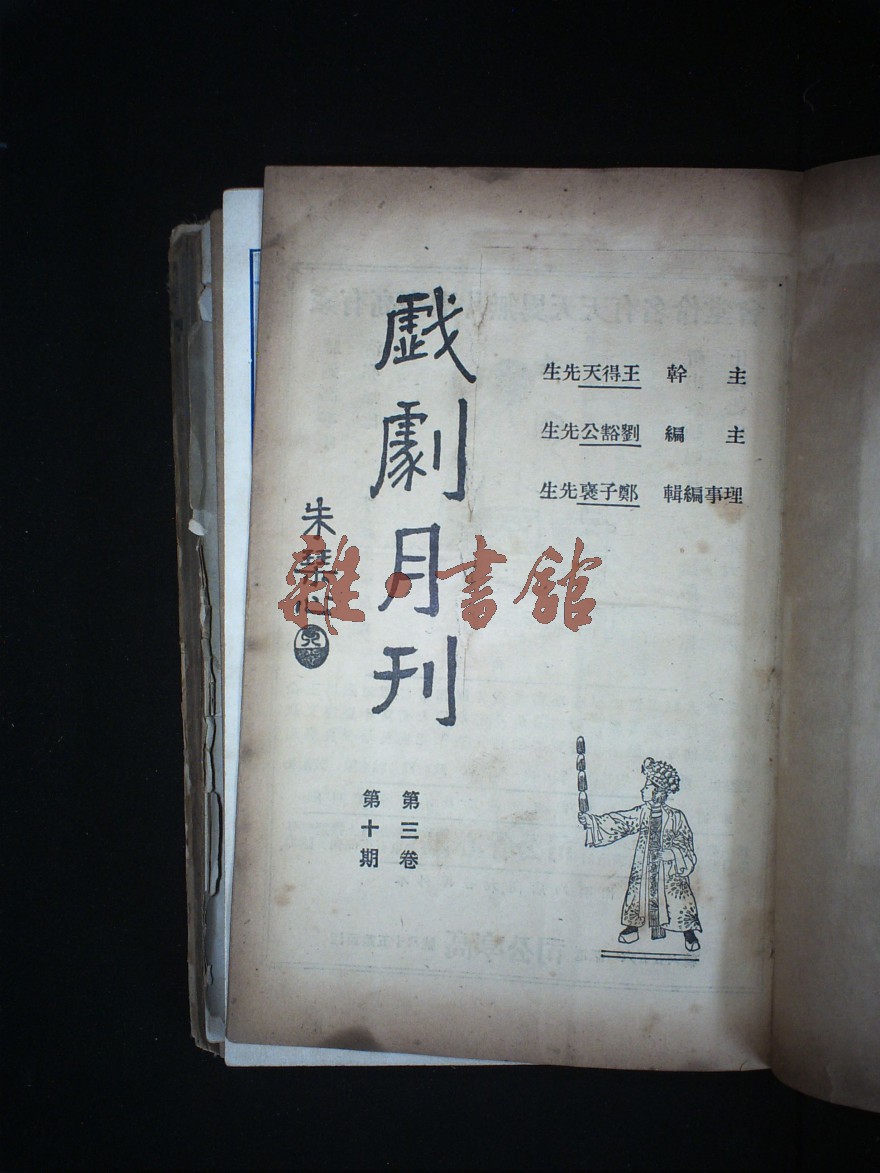 主幹 王得天先生
主編 劉豁公先生
理事編輯 鄭子褒先生
戲劇月刊
第三卷
第十期
朱琹心
雜·書館